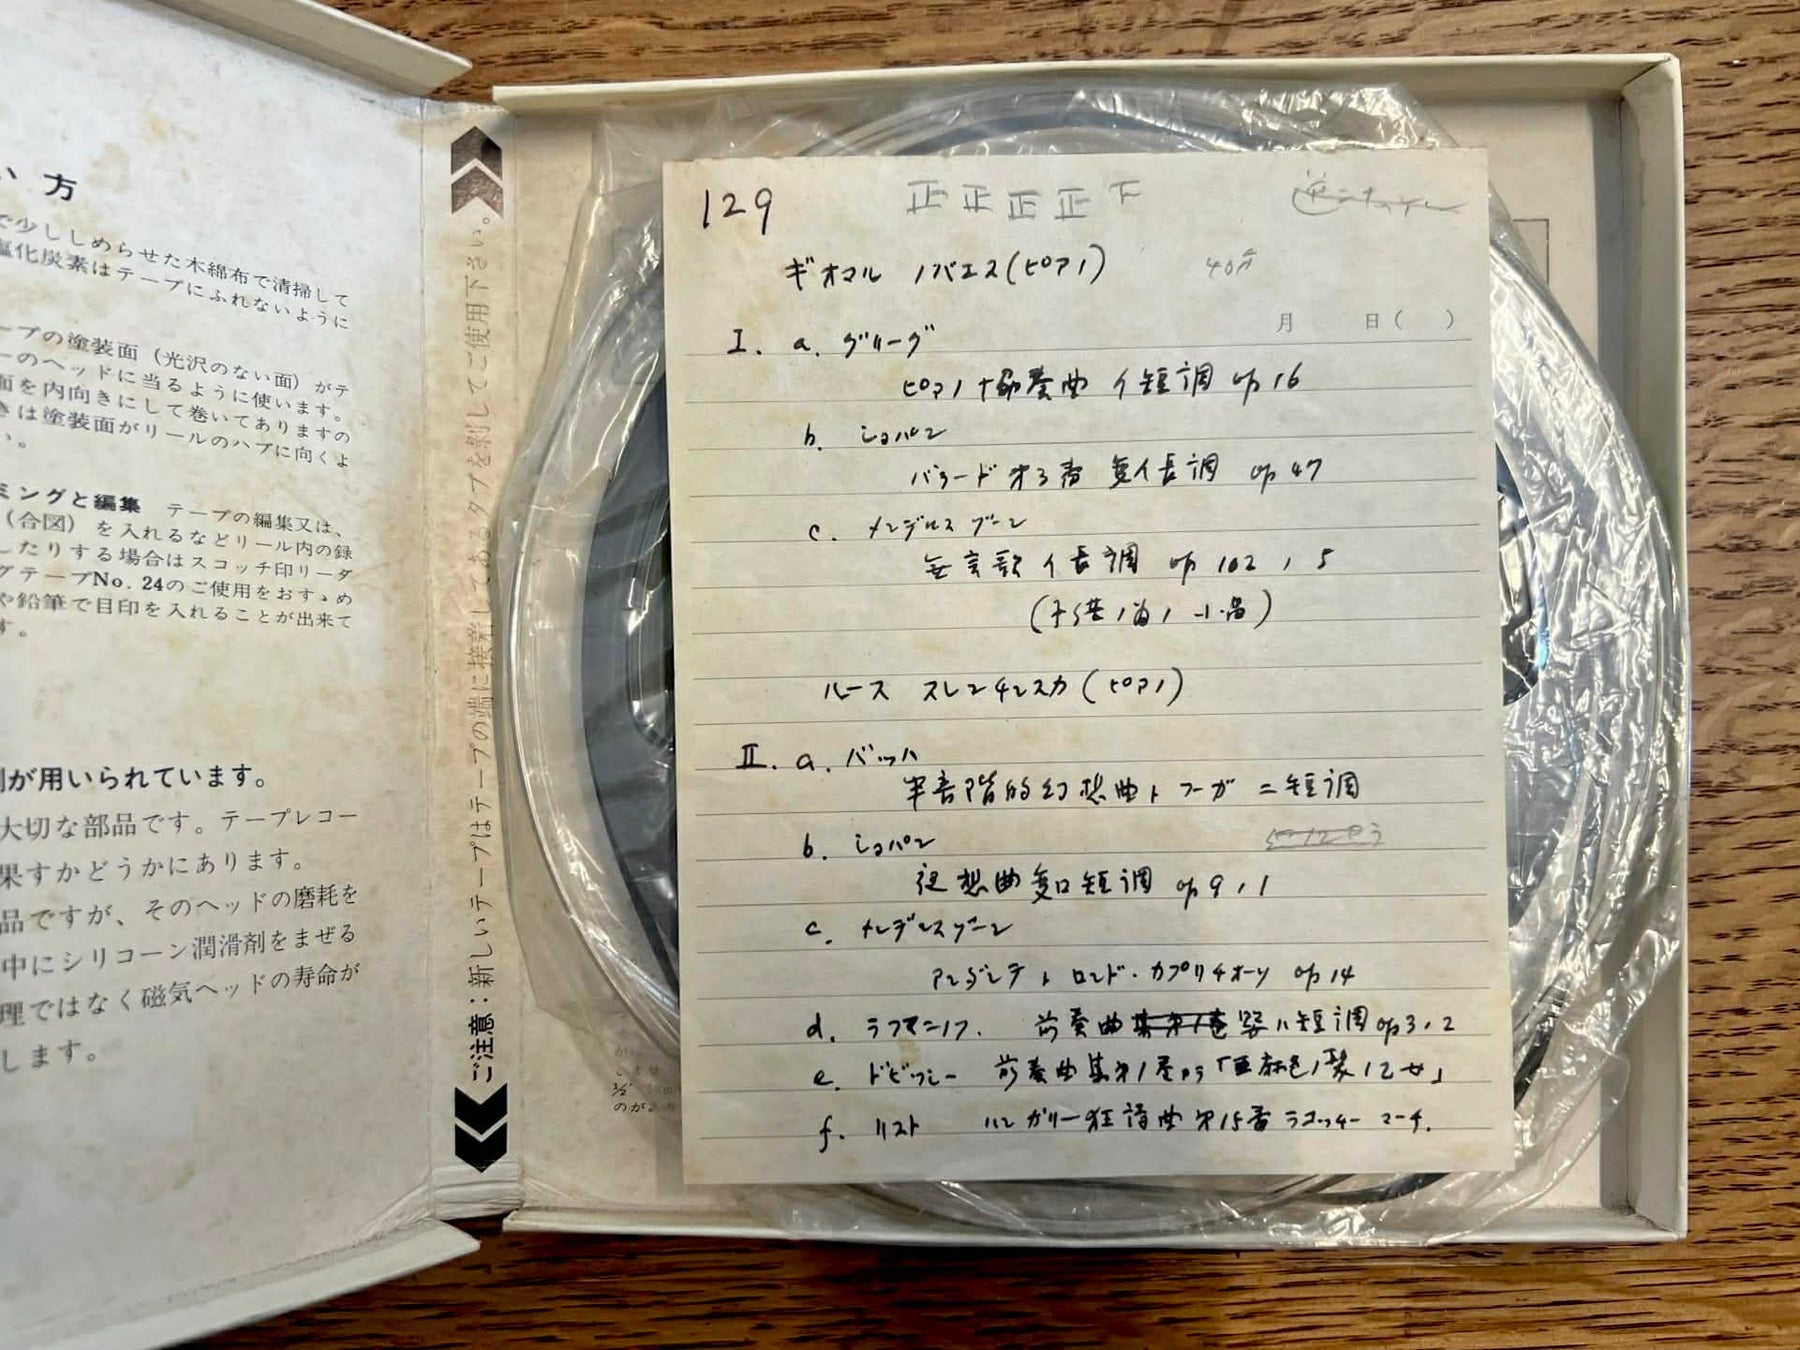 い方
で少ししめらせた木綿布で清掃して
塩化炭素はテープにふれないように
ープの塗装面（光沢のない面）がテ
ーのヘッドに当るように使います。
面を内向きにして巻いてありますの
きは塗装面がリールのハブに向くよ
い。
ミングと編集 テープの編集又は、
（合図）を入れるなどリール内の録
したりする場合はスコッチ印リーダ
グテープNo. 24のご使用をおすゝめ
や鉛筆で目印を入れることが出来て
す。
が用いられています。
大切な部品です。テープレコー
果すかどうかにあります。
品ですが、そのヘッドの磨耗を
中にシリコーン潤滑剤をまぜる
理ではなく磁気ヘッドの寿命が
します。
ご注意：新しいテープはテープの端に接着してあるタブを剝してご使用下さい。
129 正正正正下
ギオマル ノバエス(ピアノ) 40分
月 日( )
I. a. グリーグ
ピアノ協奏曲 イ短調 op 16
b. ショパン
バラード 第3番 変イ長調 op 47
c. メンデルスゾーン
無言歌 イ長調 op 102, 5
(子供ノ為ノ小品)
ルース スレンチンスカ(ピアノ)
II. a. バッハ
半音階的幻想曲トフーガ ニ短調
b. ショパン
夜想曲変ロ短調 op 9, 1
c. メンデルスゾーン
アンダンテ ト ロンド・カプリチオーソ op 14
d. ラフマニノフ. 前奏曲 嬰ハ短調 op 3, 2
e. ドビッシー 前奏曲集第1巻から「亜麻色ノ髪ノ乙女」
f. リスト ハンガリー狂詩曲 第15番 ラコッチー マーチ.